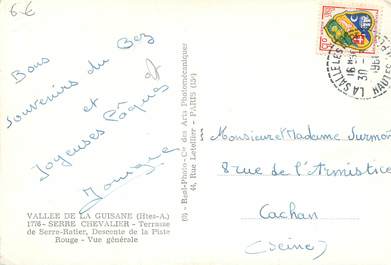 6€
Bons
Souvenirs du Bez
et
Joyeuses Pâques
Monique
VALLEE DE LA GUISANE (Htes-A.)
1776 - SERRE CHEVALIER - Terrasse
de Serre-Ratier, Descente de la Piste
Rouge - Vue générale
Real-Photo - Cie des Arts Photomécaniques
44, Rue Letellier - PARIS (15e)
LA SALLE LES
HAUTES
16H
30 -
Monsieur et Madame Surmon
8 rue de l'Armistice
Cachan
(Seine)